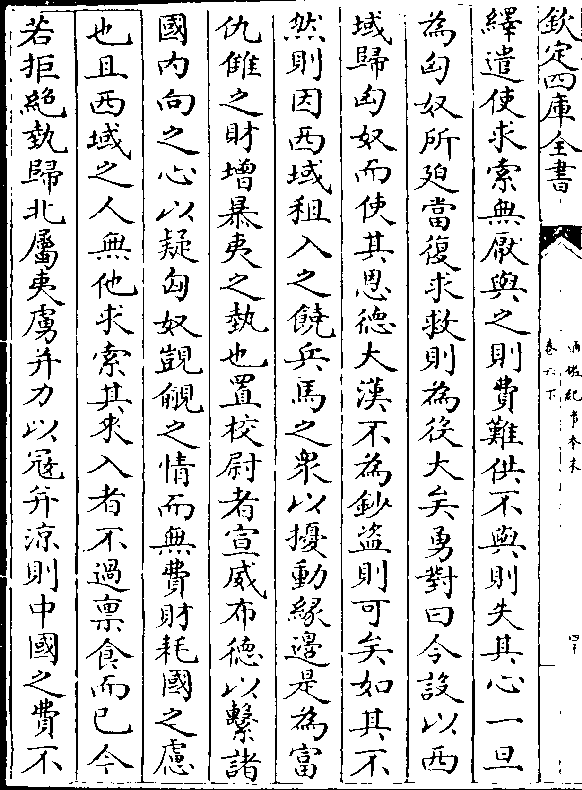 欽定四庫全書
卷六下
繹遣使求索無厭與之則費難供不與則失其心一旦
為匈奴所廹當復求救則為役大矣勇對曰今設以西
域歸匈奴而使其恩德大漢不為鈔盜則可矣如其不
然則因西域租入之饒兵馬之衆以擾動緣邊是為富
仇讎之財增暴夷之埶也置校尉者宣威布德以繫諸
國内向之心以疑匈奴覬覦之情而無費財耗國之慮
也且西域之人無他求索其來入者不過禀食而已今
若拒絶埶歸北屬夷虜并力以冦并凉則中國之費不